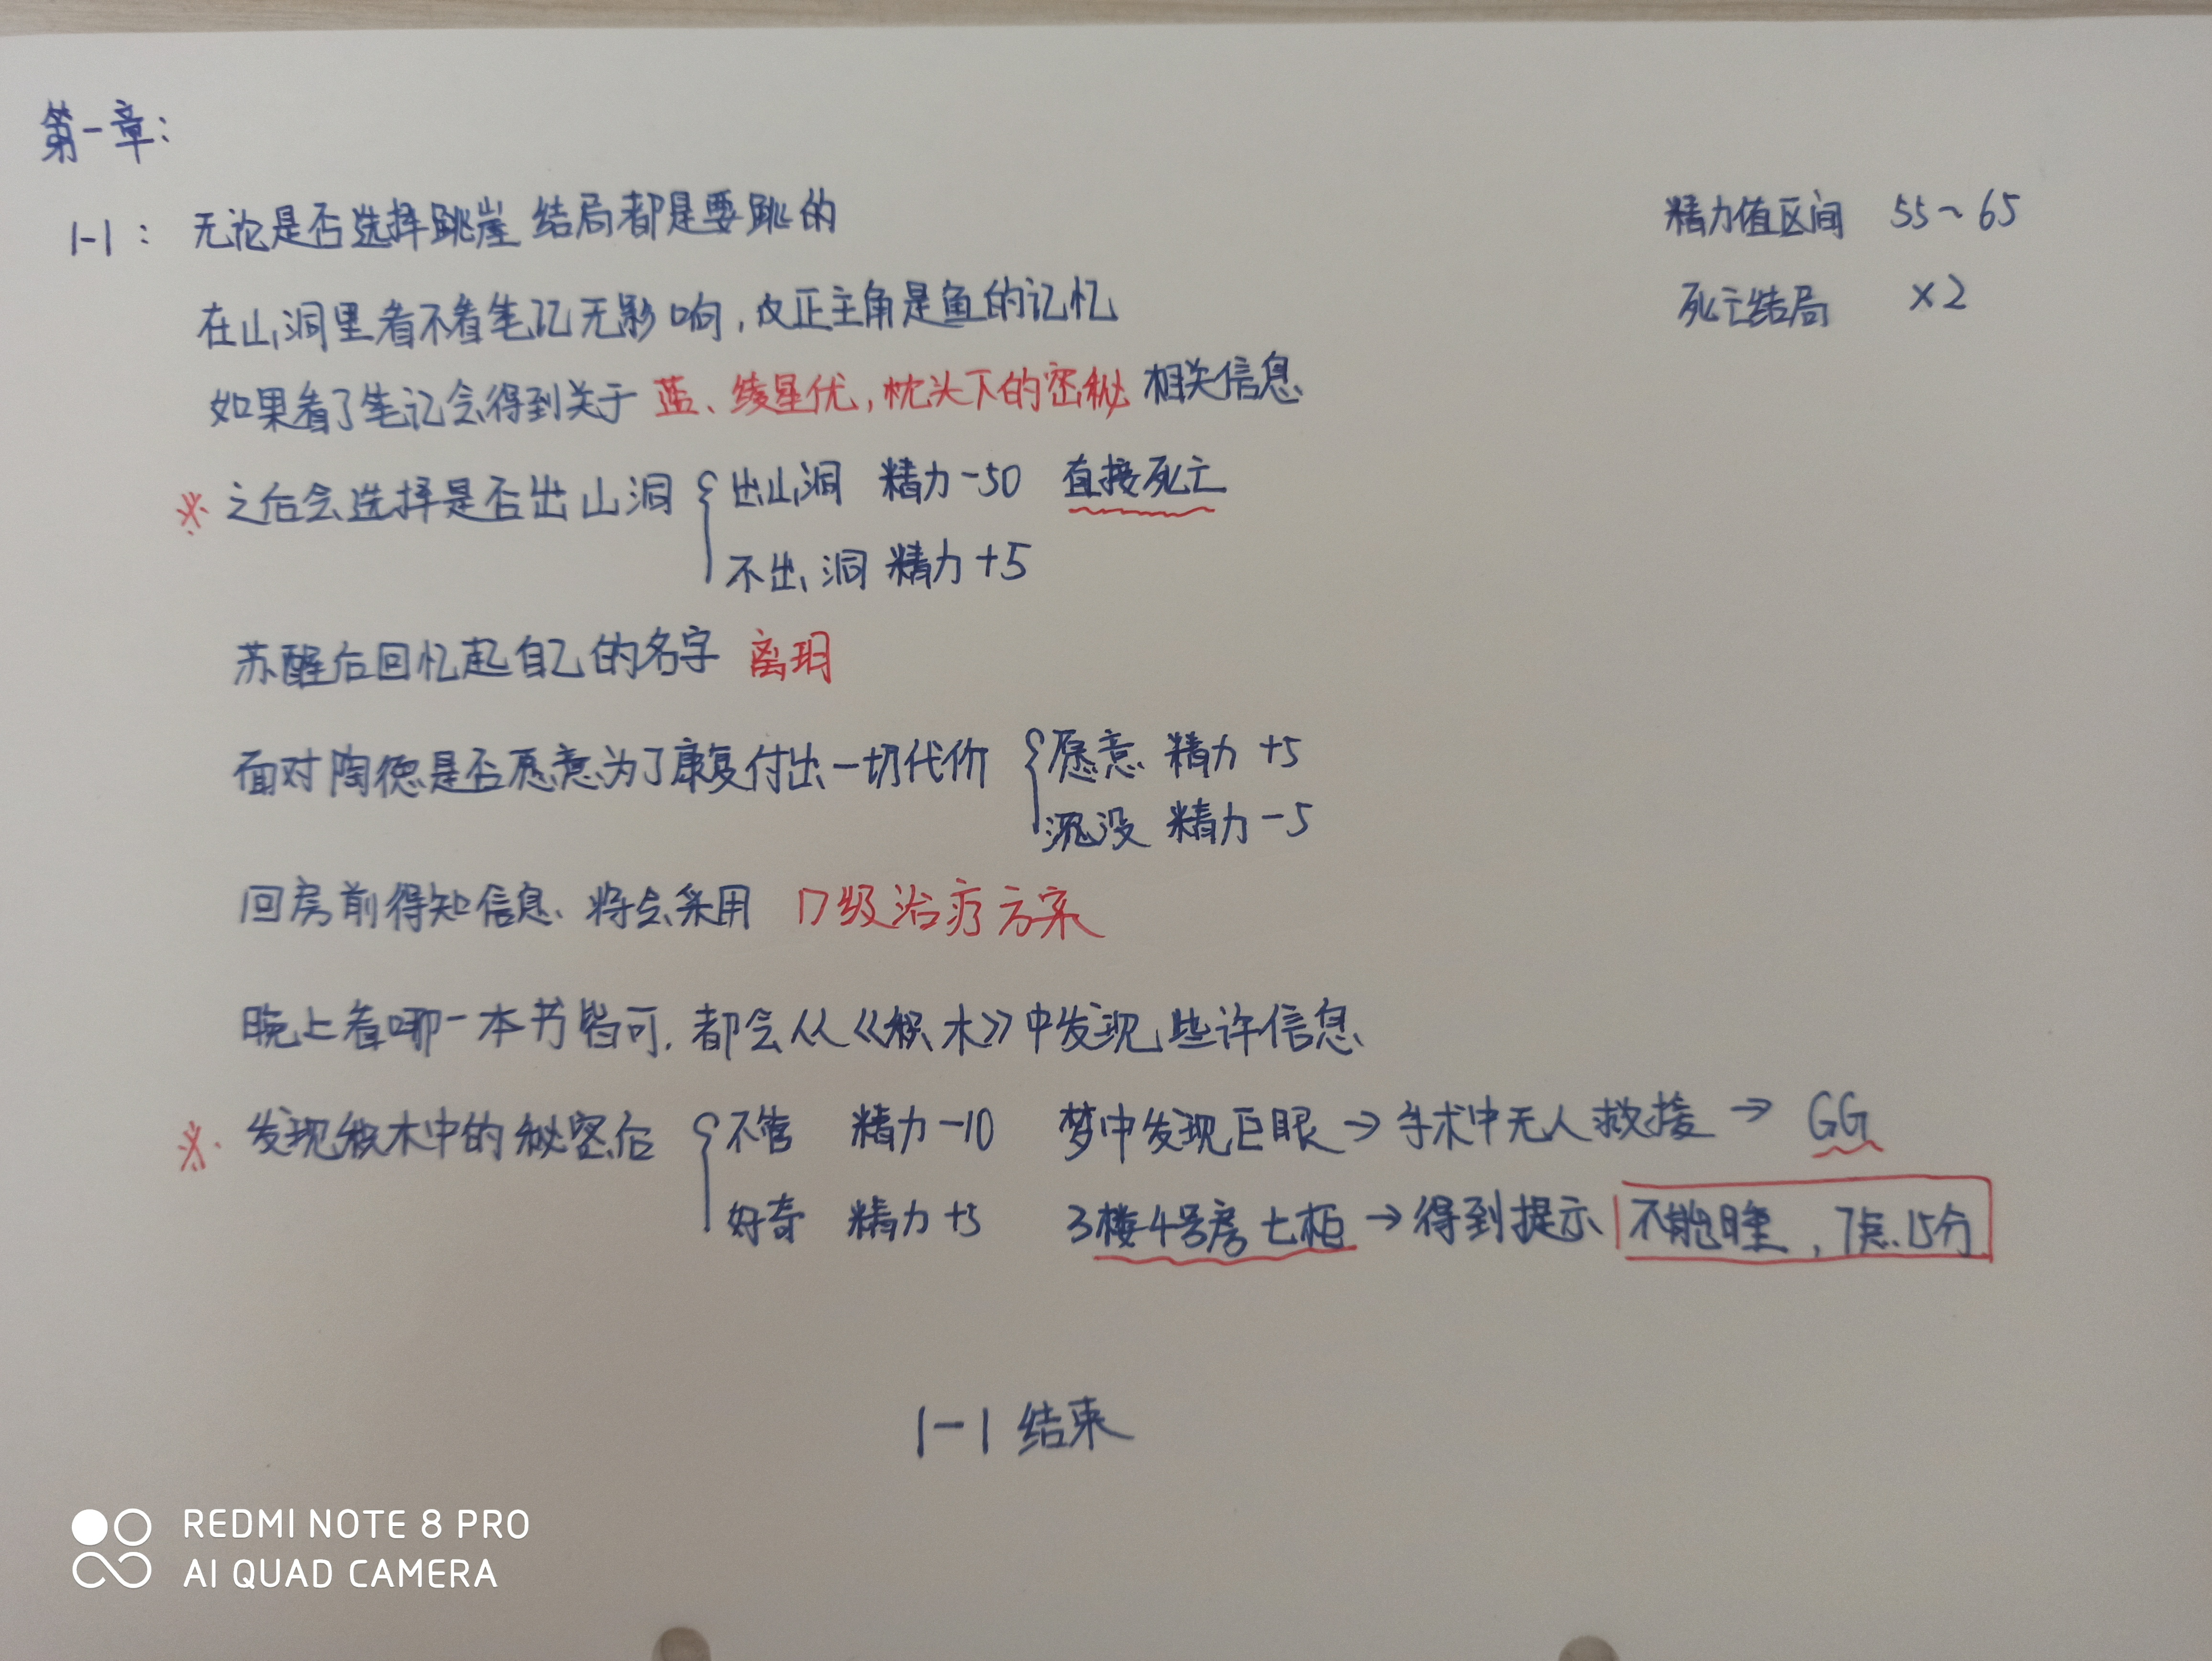 第一章:
1-1: 无论是否选择跳崖 结局都是要跳的
精力值区间 55~65
死亡结局 ×2
在山洞里看不看笔记无影响,反正主角是鱼的记忆
如果看了笔记会得到关于 蓝、绫星优,枕头下的密秘 相关信息
※ 之后会选择是否出山洞 { 出山洞 精力-50 直接死亡
不出洞 精力+5
苏醒后回忆起自己的名字 离玥
面对陶德是否愿意为了康复付出一切代价 { 愿意 精力+5
沉没 精力-5
回房前得知信息、将会采用 D级治疗方案
晚上看哪一本书皆可,都会从《积木》中发现些许信息
※ 发现积木中的秘密后 { 不管 精力-10 梦中发现巨眼→手术中无人救援→GG
好奇 精力+5 3楼4号房七柜→得到提示 不能睡,7点15分
1-1 结束
REDMI NOTE 8 PRO
AI QUAD CAMERA